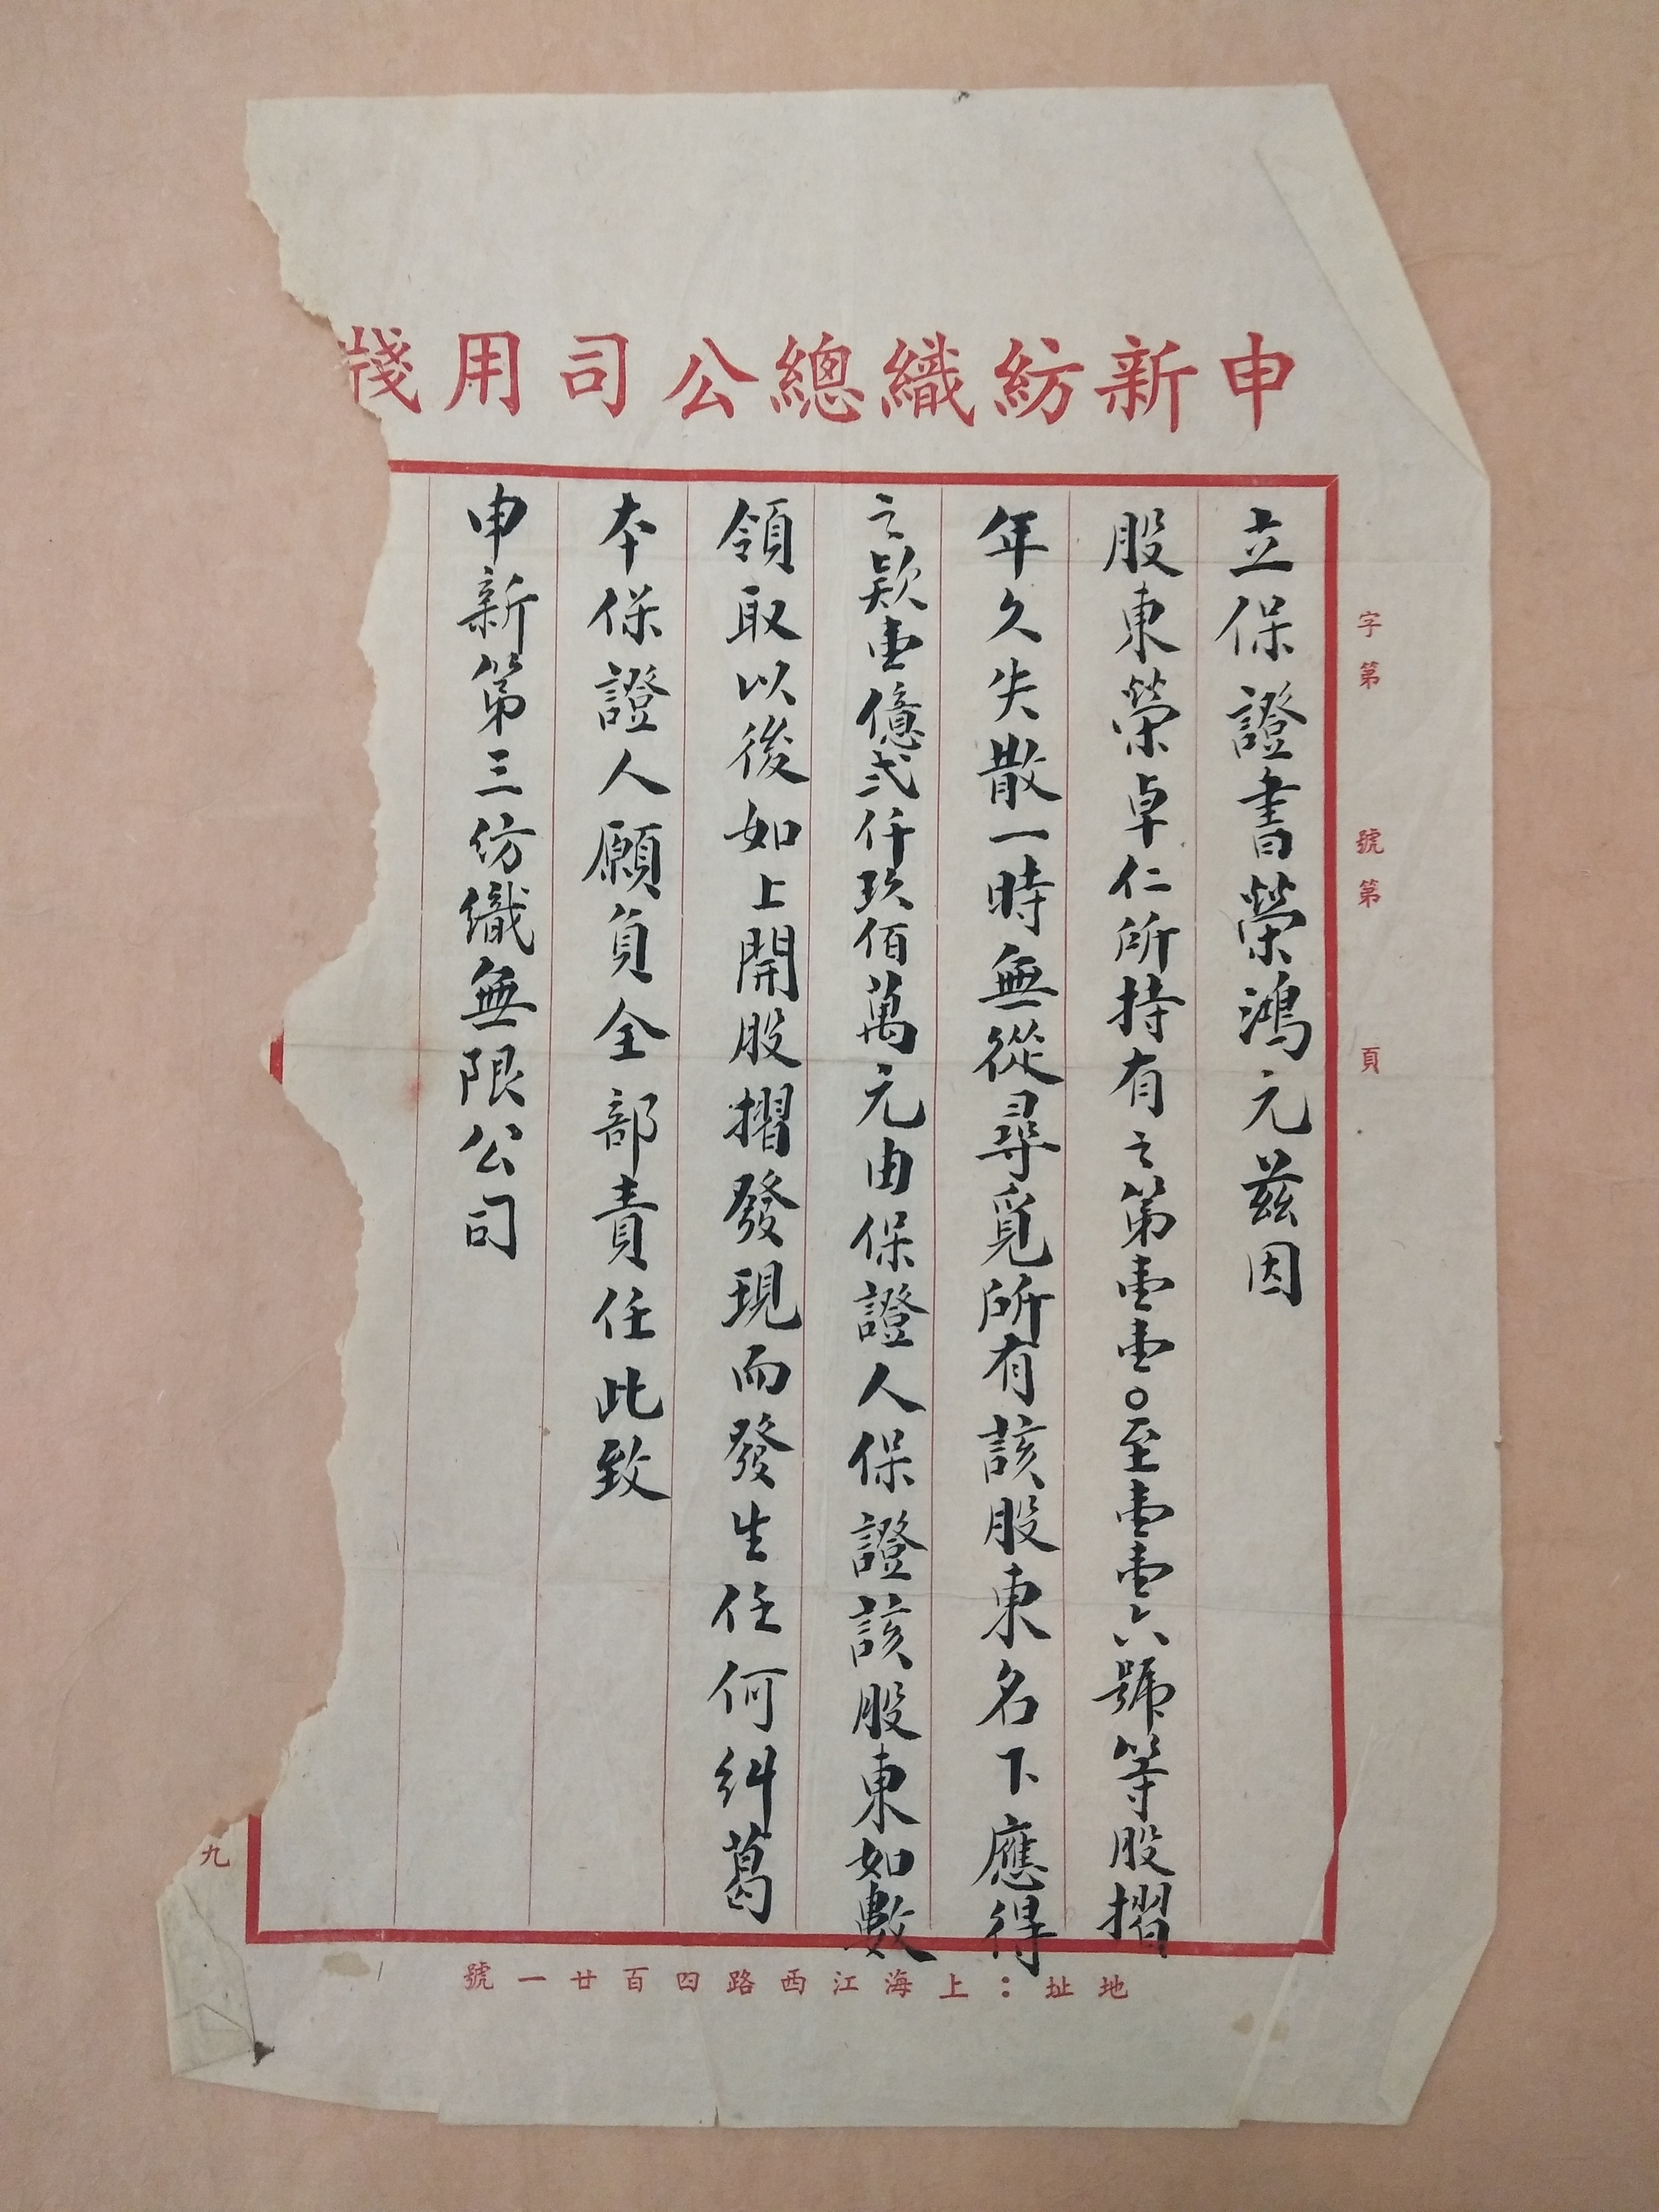 申新紡織總公司用箋
字第 號第 頁
立保證書榮鴻元茲因
股東榮卓仁所持有之第壹壹○至壹壹六號等股摺
年久失散一時無從尋覓所有該股東名下應得
之款壹億弍仟玖佰萬元由保證人保證該股東如數
領取以後如上開股摺發現而發生任何糾葛
本保證人願負全部責任此致
申新第三紡織無限公司
九
地址：上海江西路四百廿一號